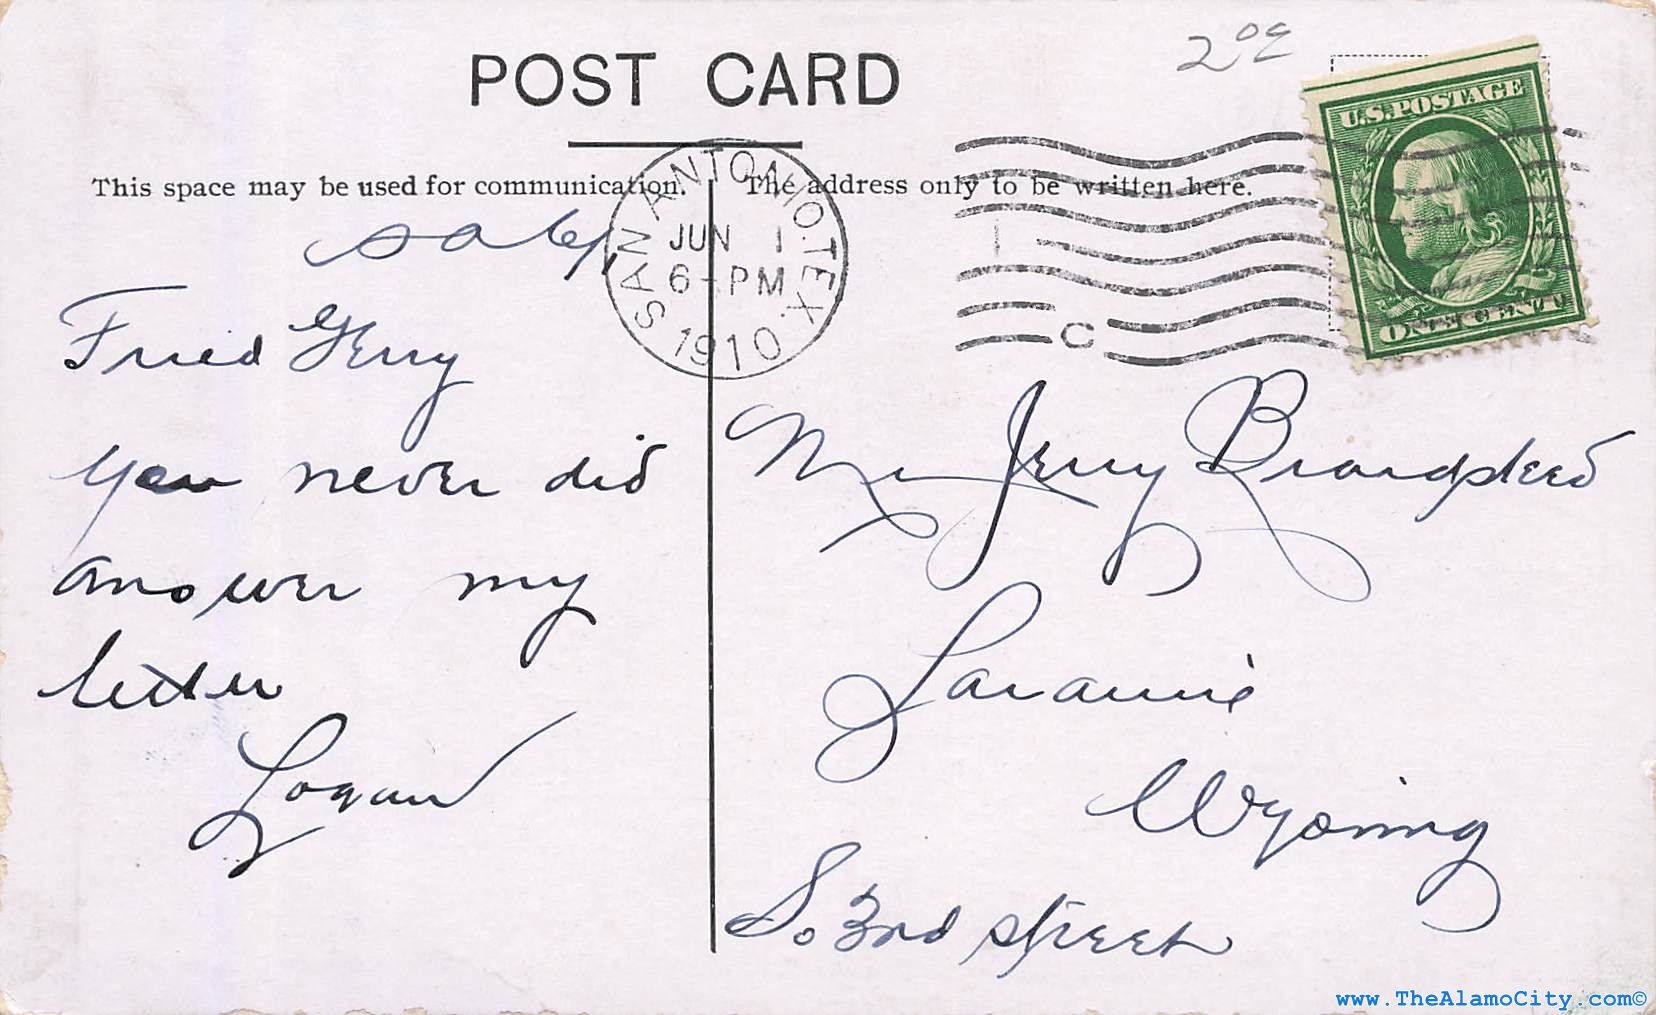 POST CARD
2 00
U.S. POSTAGE
ONE CENT
SAN ANTONIO. TEX.
JUN 1
6-PM
1910
C
This space may be used for communication.
The address only to be written here.
Fried Jerry
you never did
answer my
letter
Logan
Mr Jerry
Laramie
Wyoming
So 3rd street
www.TheAlamoCity.com©